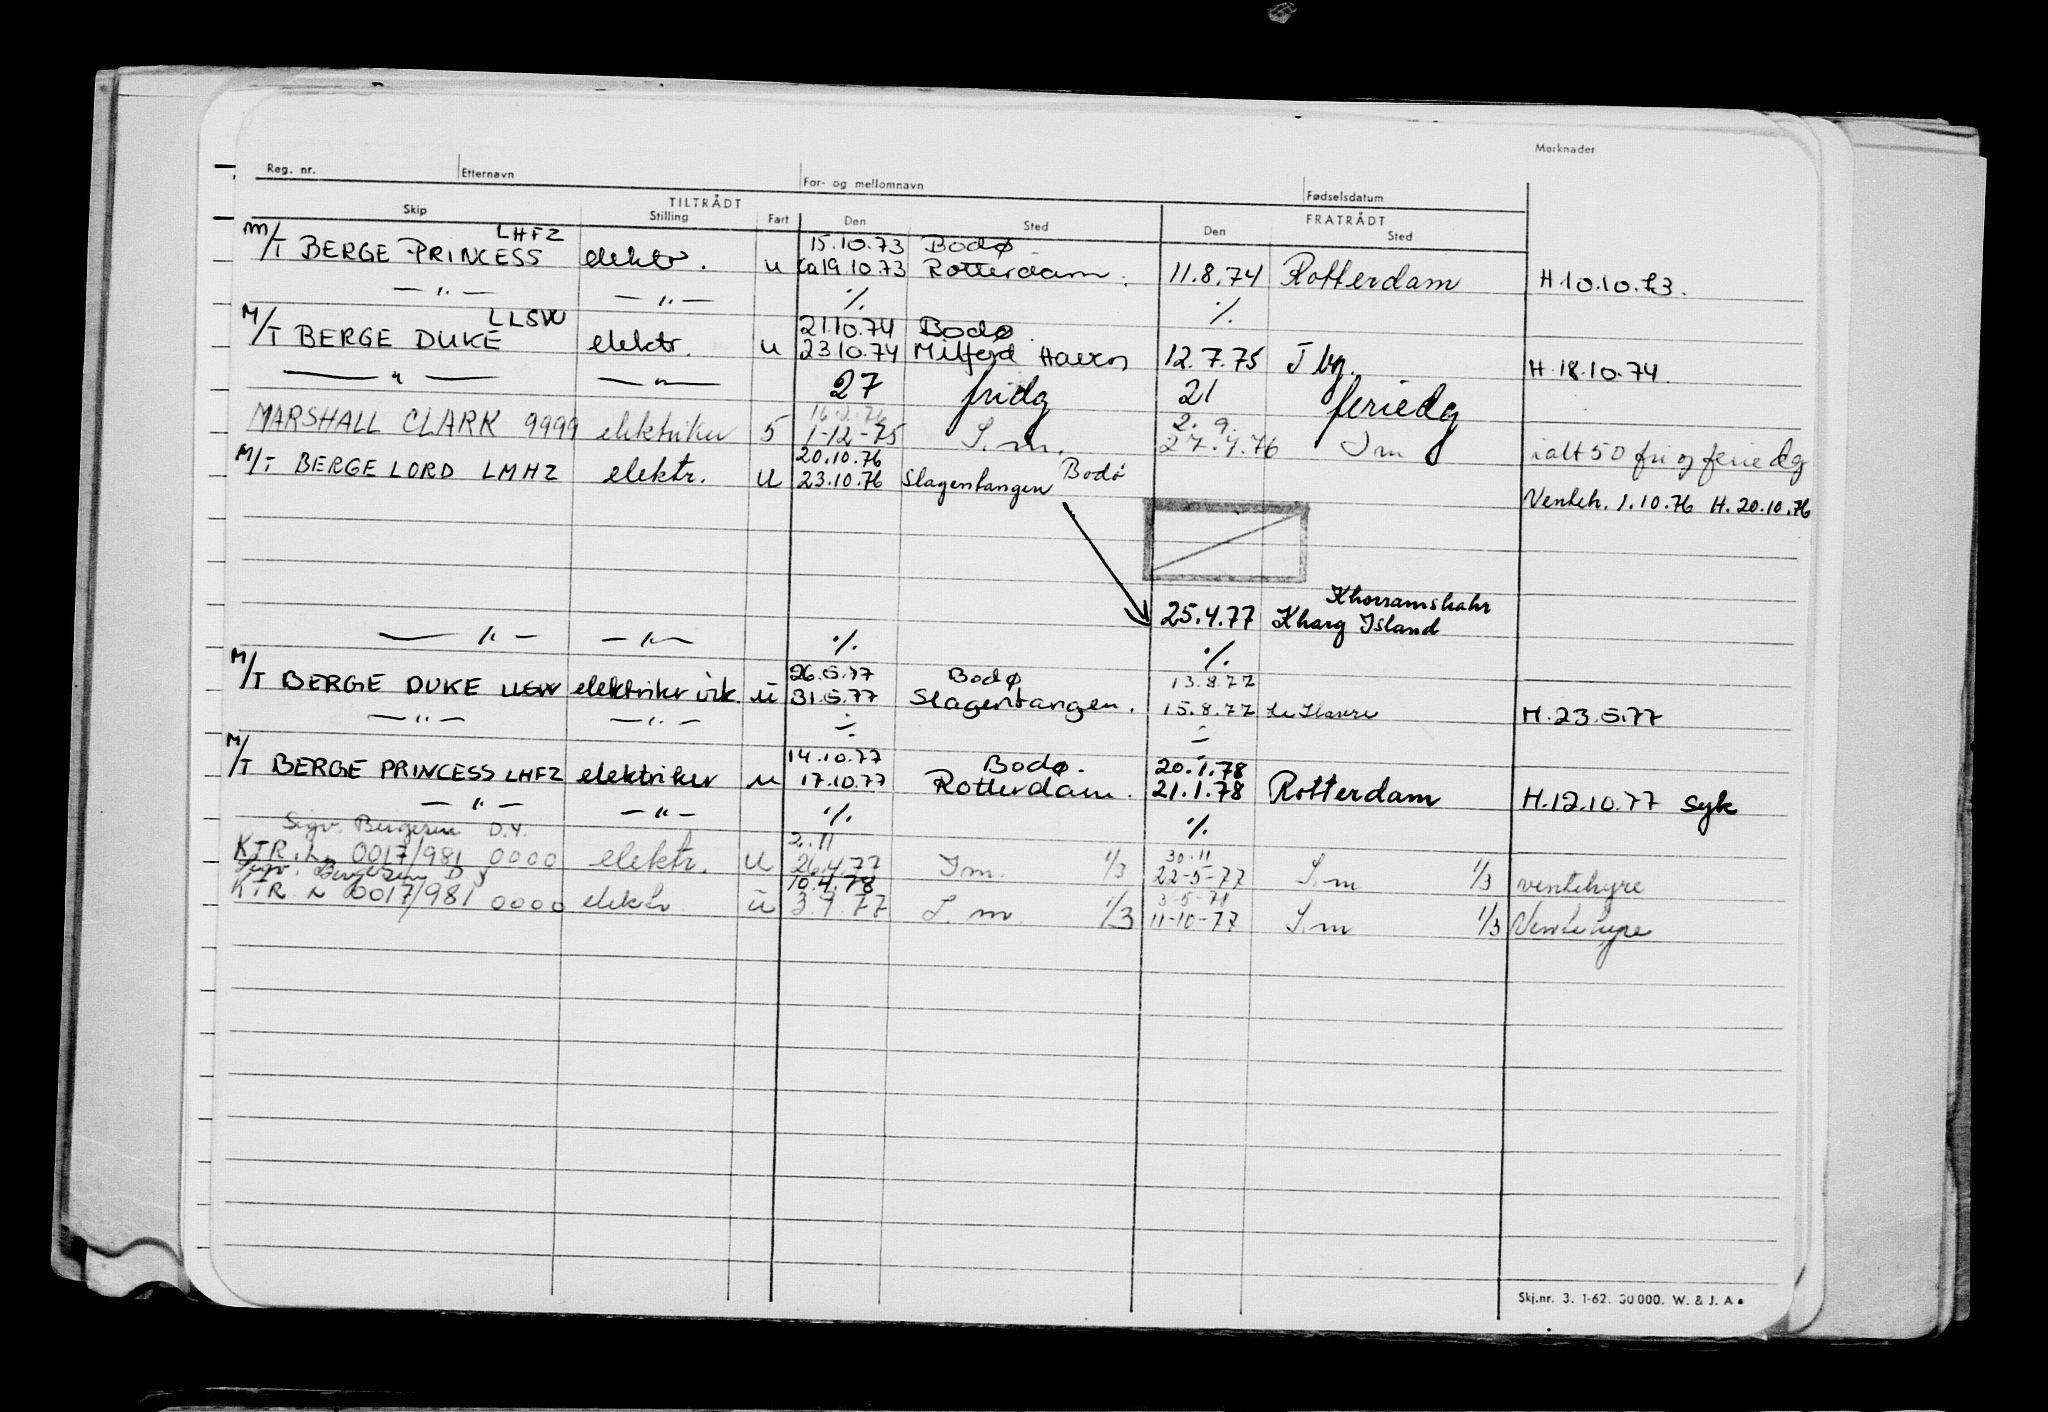 Merknader
Reg. nr. Etternavn For- og mellomnavn Fødselsdatum
TILTRÅDT FRATRÅDT
Skip Stilling Fart Den Sted Den Sted
LHFZ 15.10.73 Bodø
M/T BERGE PRINCESS elektr. u ca 19.10.73 Rotterdam. 11.8.74 Rotterdam H.10.10.73.
— " — — " — % %
LLSW 21.10.74 Bodø
M/T BERGE DUKE elektr. u 23.10.74 Milford Haven 12.7.75 H.18.10.74.
— " — — " — 27 fridg 21 feriedg
16.2.76 2. 9.
MARSHALL CLARK 9999 elektriker 5 1-12-75 S.m. 27.4.76 Sm ialt 50 fri og feriedg
20.10.76 Bodø
M/T BERGE LORD LMHZ elektr. u 23.10.76 Slagentangen
Venteh. 1.10.76 H. 20.10.76
Khorramshahr
25.4.77 Kharg Island
— " — — " — % %
26.5.77 Bodø 13.8.77
M/T BERGE DUKE LLSW elektriker ü 31.5.77 Slagentangen. 15.8.77 Le Havre H.23.5.77
— " — — " — ÷ ÷
14.10.77 Bodø. 20.1.78
M/T BERGE PRINCESS LHFZ elektriker u 17.10.77 Rotterdam. 21.1.78 Rotterdam H.12.10.77 syk
— " — — " — % %
Sigv. Bergesen D.Y. 2.11 30.11
KTR. L. 0017/981 0000 elektr. u 26.4.77 Sm. 1/3 22-5-77 S.m 1/3 ventehyre
Sigv. Bergesen D Y 10.4.78 3-5-78
KTR. L 0017/981 0000 elektr. u S.m. 1/3 11-10-77 S.m 1/3 Ventehyre
Skj.nr. 3. 1-62. 30 000. W. & J. A.